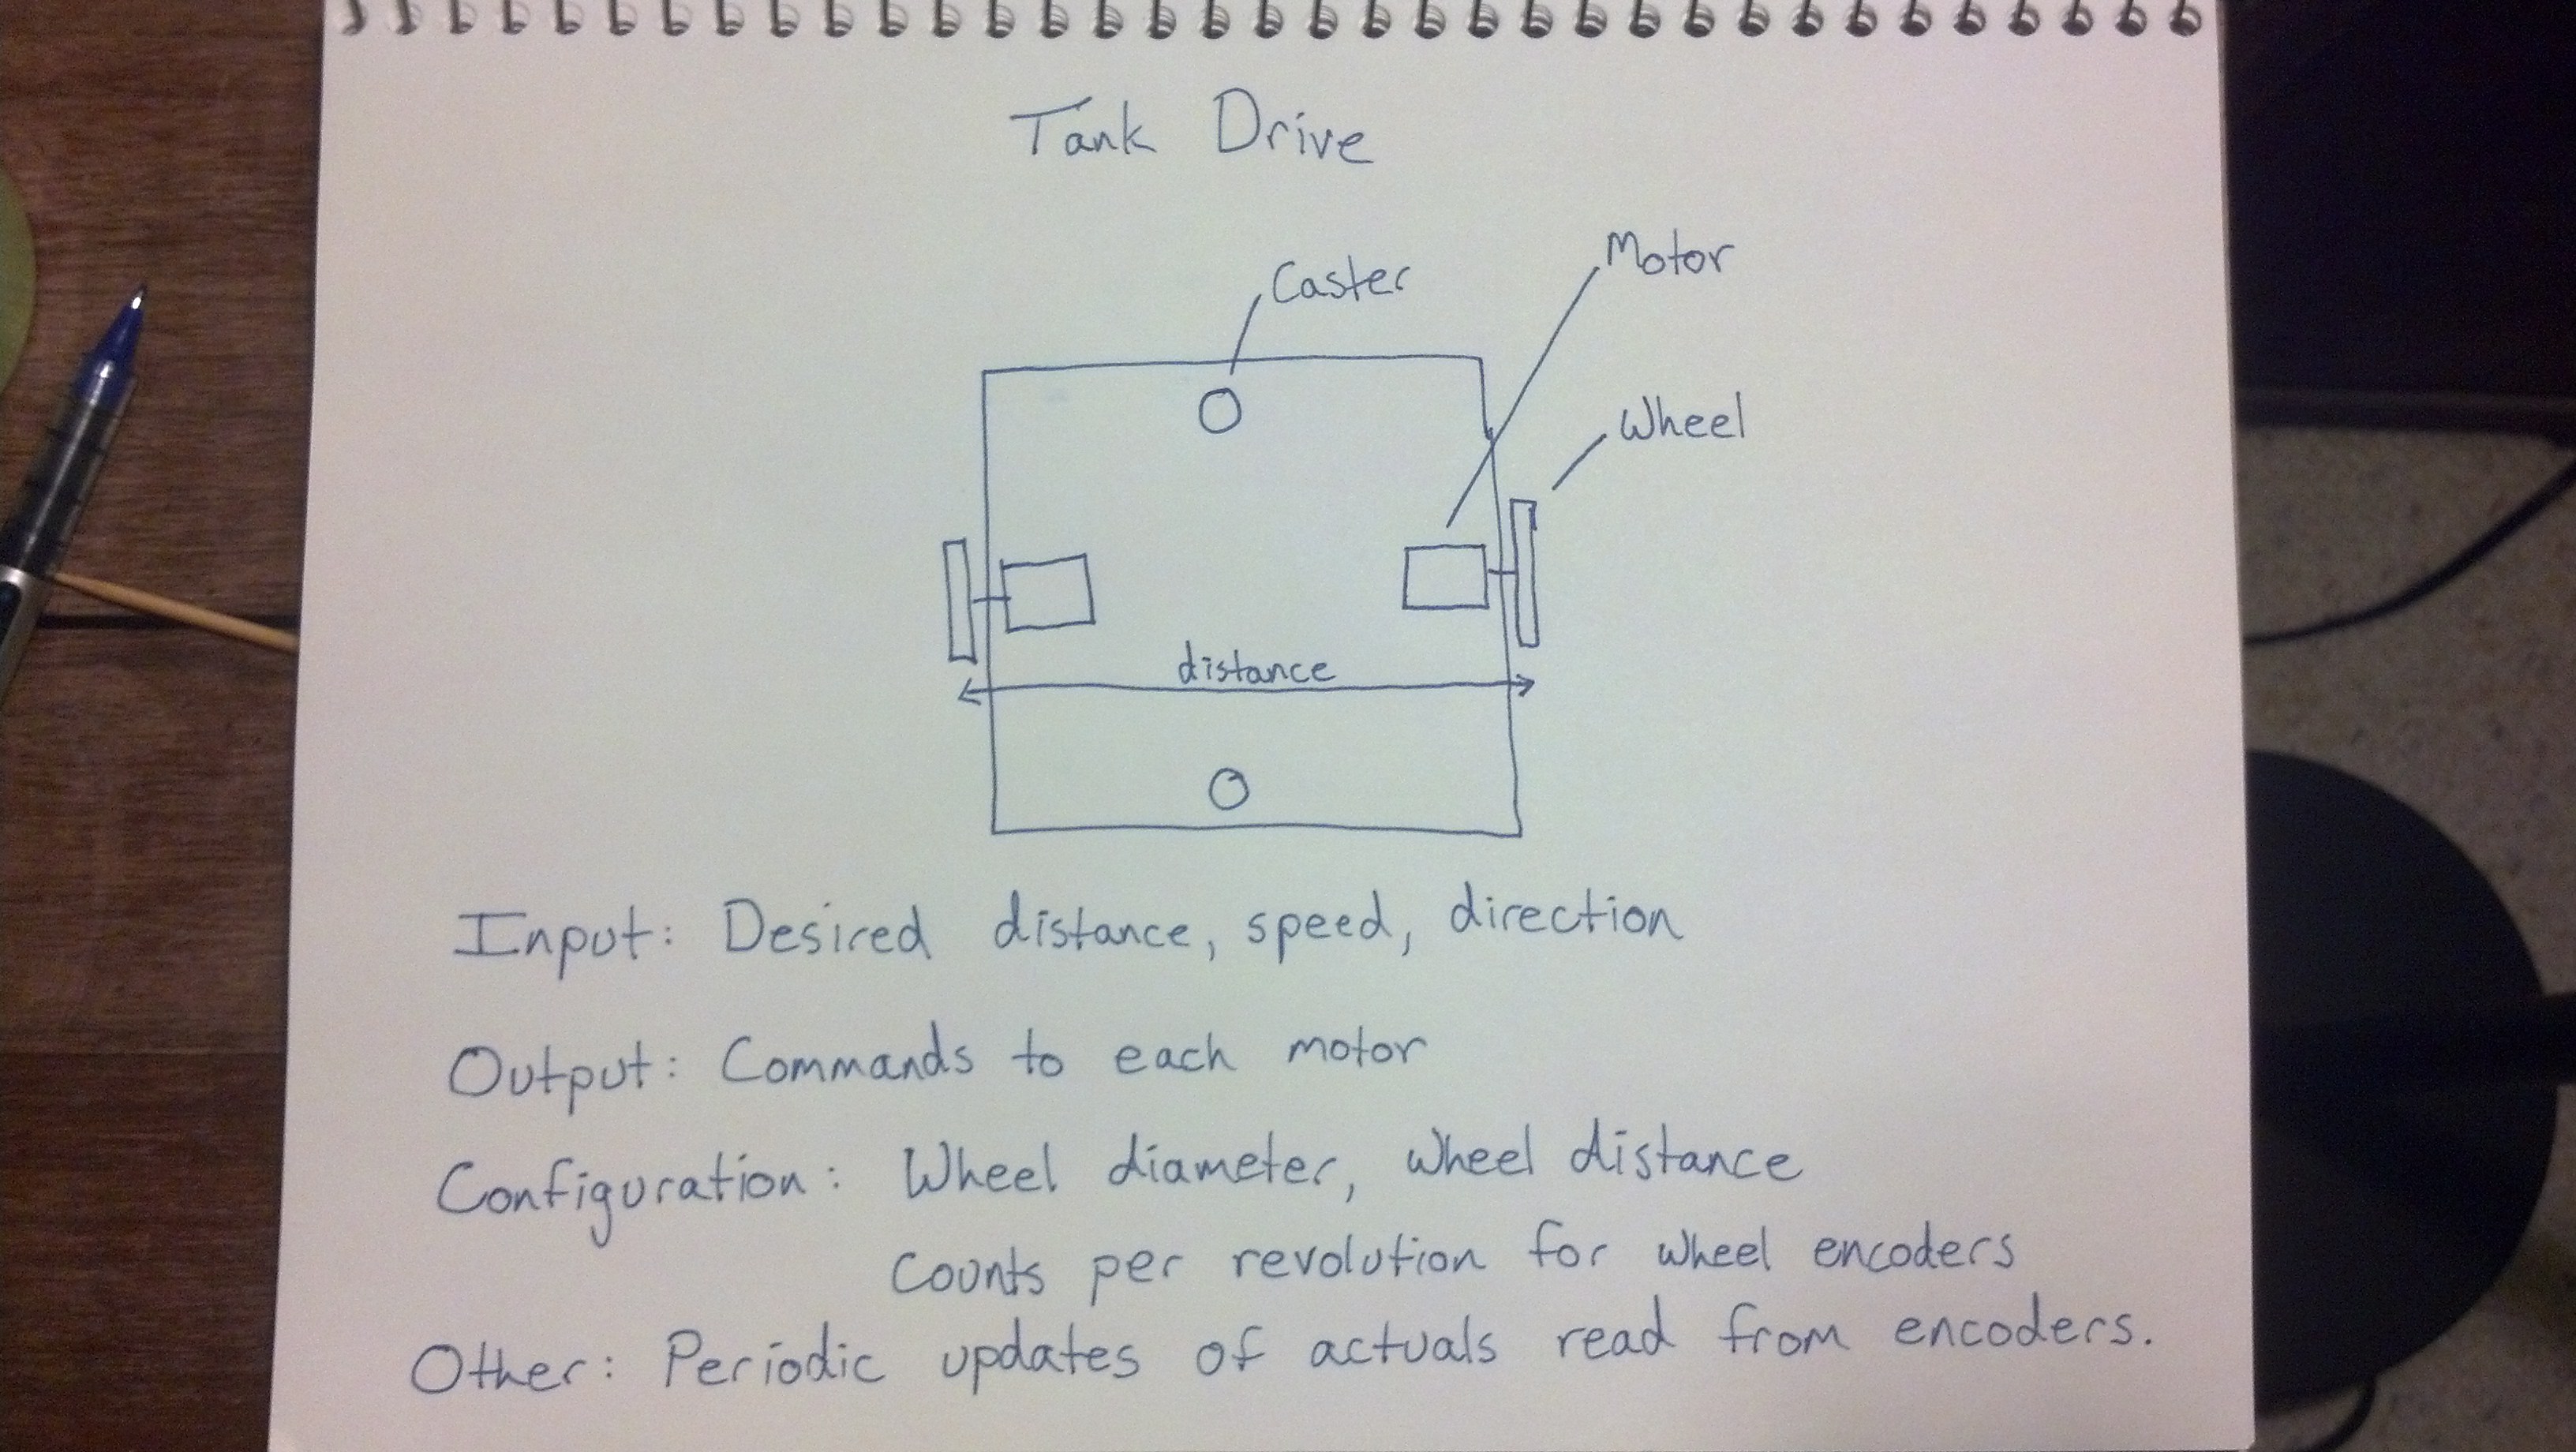 Tank Drive
Motor
Caster
Wheel
distance
Input: Desired distance, speed, direction
Output: Commands to each motor
Configuration: Wheel diameter, wheel distance
Counts per revolution for wheel encoders
Other: Periodic updates of actuals read from encoders.